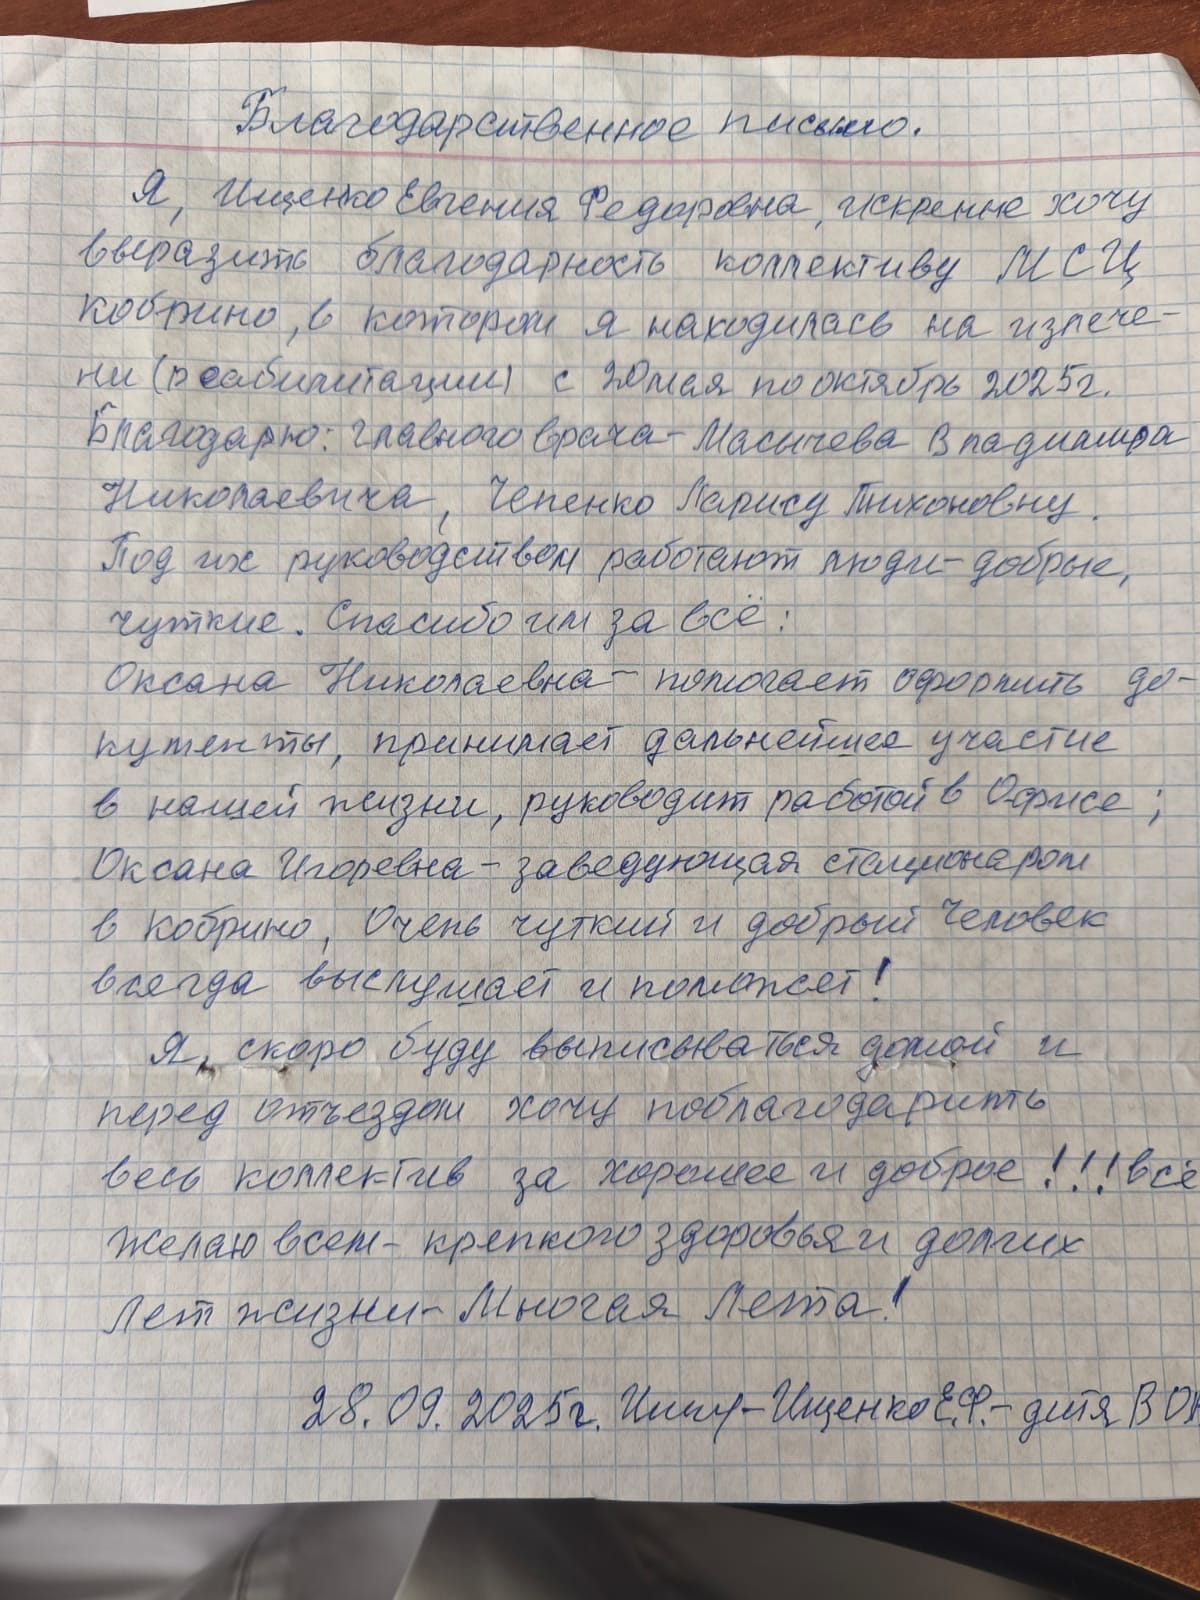 Благодарственное письмо.
Я, Ищенко Евгения Федоровна, искренне хочу
выразить благодарность коллективу МСЦ
Кобрино, в котором я находилась на излече-
ни (реабилитации) с 20 мая по октябрь 2025г.
Благодарю: главного врача - Масычева Владимира
Николаевича, Чепенко Ларису Тихоновну.
Под их руководством работают люди - добрые,
чуткие. Спасибо им за всё:
Оксана Николаевна - помогает оформить до-
кументы, принимает дальнейшее участие
в нашей жизни, руководит работой в Офисе;
Оксана Игоревна - заведующая стационаром
в Кобрино, Очень чуткий и добрый Человек
всегда выслушает и поможет!
Я, скоро буду выписываться домой и
перед отъездом хочу поблагодарить
весь коллектив за хорошее и доброе!!! всё
Желаю всем - крепкого здоровья и долгих
лет жизни - Многая Лета!
28.09.2025г. - Ищенко Е.Ф. - дитя ВОВ